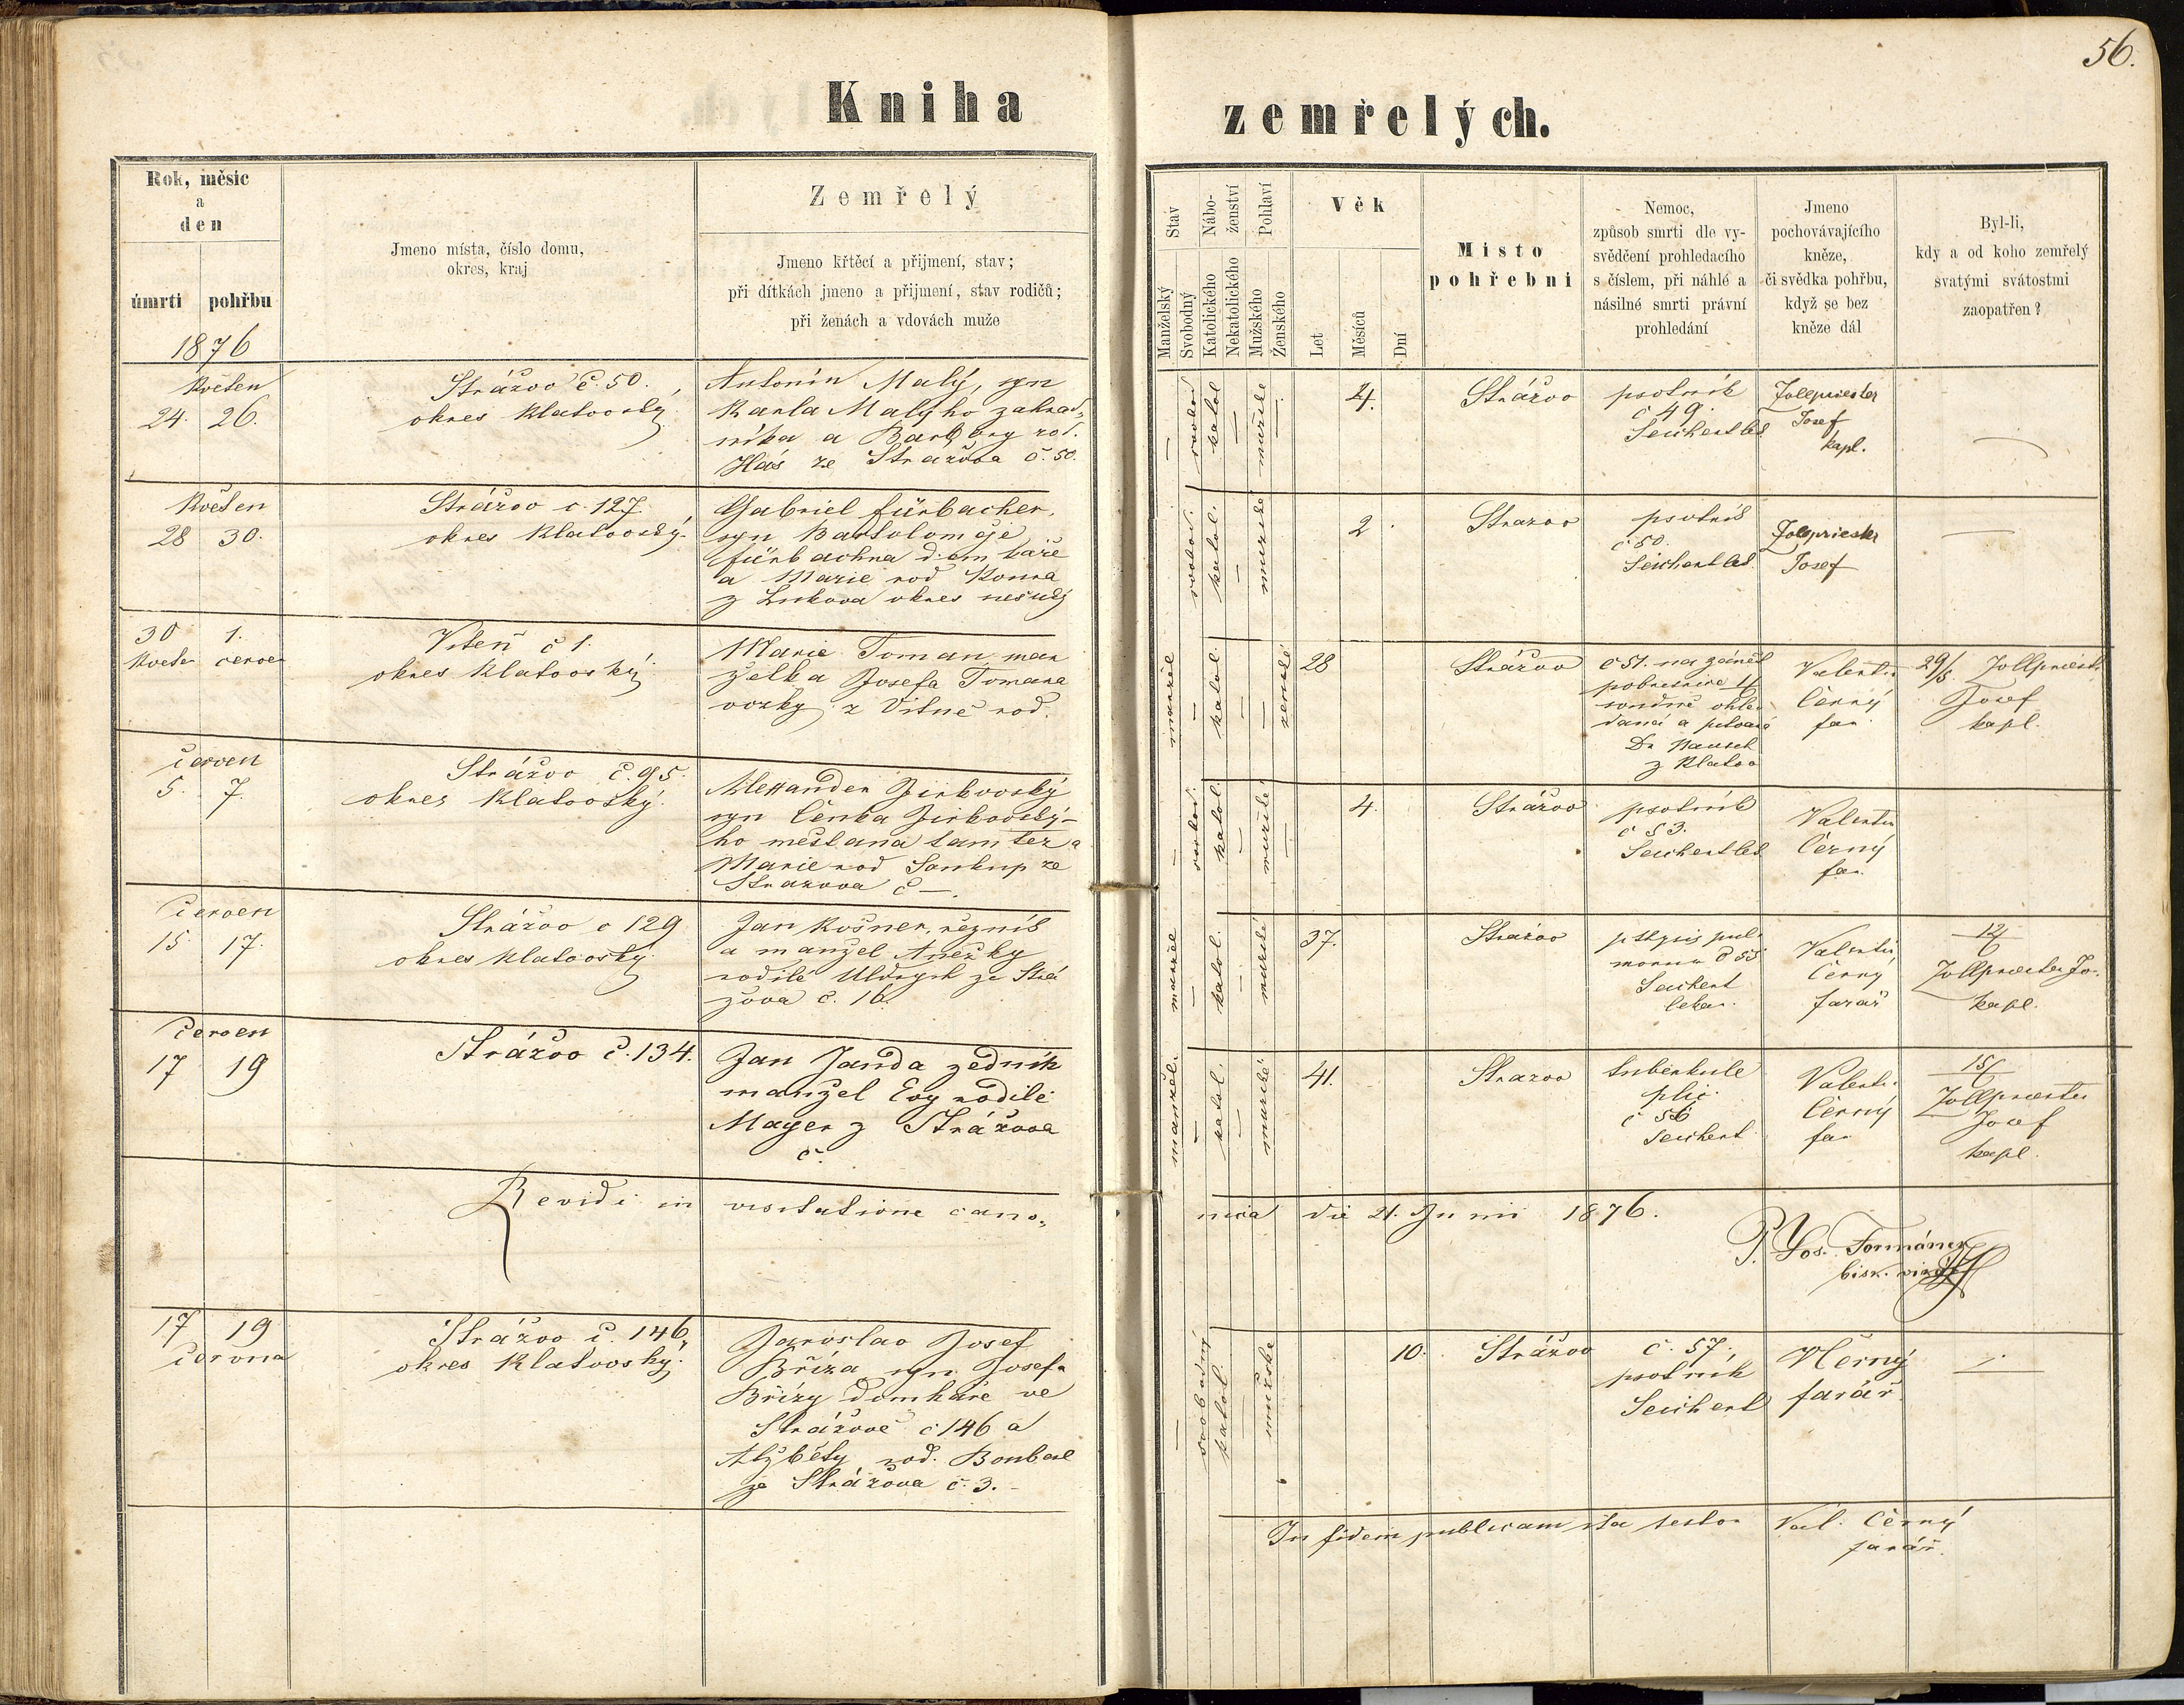 56.
Kniha
zemřelých.
Rok, měsíc
a
den
úmrti pohřbu
1876
Jmeno místa, číslo domu,
okres, kraj
Zemřelý
Jmeno křtěcí a přijmení, stav;
při dítkách jmeno a přijmení, stav rodičů;
při ženách a vdovách muže
Stav
Manželský
Svobodný
Nábo-
ženství
Katolického
Nekatolického
Pohlaví
Mužského
Ženského
Věk
Let
Měsíců
Dní
Místo
pohřební
Nemoc,
způsob smrti dle vy-
svědčení prohledacího
s číslem, při náhlé a
násilné smrti právní
prohledání
Jmeno
pochovávajícího
kněze,
či svědka pohřbu,
když se bez
kněze dál
Byl-li,
kdy a od koho zemřelý
svatými svátostmi
zaopatřen?
Květen
24. 26.
Strážov č. 50.
okres Klatovský
Antonín Malý, syn
Karla Malýho zahrad„
níka a Barbory roz.
Hás ze Strážova č. 50.
svobod
katol
mužské
4.
Strážov
psotník
č 49.
Seichert lek
Zollpriester
Josef
kapl.
Květen
28 30.
Strážov č. 127.
okres Klatovský
Gabriel Fürbacher,
syn Bartoloměje
Fürbachra domkáře
a Marie rod Koura
z Lukova okres
svobod.
katol.
mužské
2
Strazov
psotník
č 50.
Seichert lek.
Zollpriester
Josef
30 1.
Květen červen
Viteň č 1.
okres Klatovský
Marie Toman man
želka Josefa Tomana
vozky z Vitně rod.
manžel
katol.
ženské
28
Strážov
č 51. na zánět
pobřišnice
soudně ohle
daná a pitvaná
Dr
z Klatov
Valentin
Černý
far.
29/5. Zollpriest.
Josef
kapl.
červen
5. 7.
Strážov č. 95.
okres Klatovský.
Alexander Jirkovský
syn Čeňka Jirkovský-
ho měšťana tamtéž a
Marie rod Soukup ze
Strazova č —.
svobod.
katol.
mužské
4.
Strážov
psotník
č 53.
Seichert lek
Valentin
Černý
far.
Červen
15. 17.
Strážov č 129
okres Klatovský
Jan Košner, řezník
a manžel Anežky
rodilé Uldrych ze Strá
žova č. 16.
manžel
katol.
mužské
37.
Strážov
Seichert
lekar.
Valentin
Černý
farář
12/6
Zollpriester Jo.
kapl.
Červen
17 19
Strážov č. 134.
Jan Janda zedník
manžel Evy rodilé
Mayer z Strážova
č.
manžel.
katol.
mužské
41.
Strazov
tuberkule
plic.
č 56
Seichert
Valenti.
Černý
far
15/6
Zollpriester
Josef
kapl.
Revidi in visitatione cano„
nica die 21. Junii 1876.
P. Jos. Formánek
bisk. vikář
17 19
června
Strážov č. 146,
okres Klatovský.
Jaroslav Josef
Bříza syn Josefa
Břízy domkáře ve
Strážově č 146 a
Alžběty rod. Boubal
ze Strážova č. 3.
svobodný
katol.
mužské
10.
Strážov
č. 57.
psotník
Seichert
VČerný
farář
In fidem publicam ita testor Val. Černý
farář.